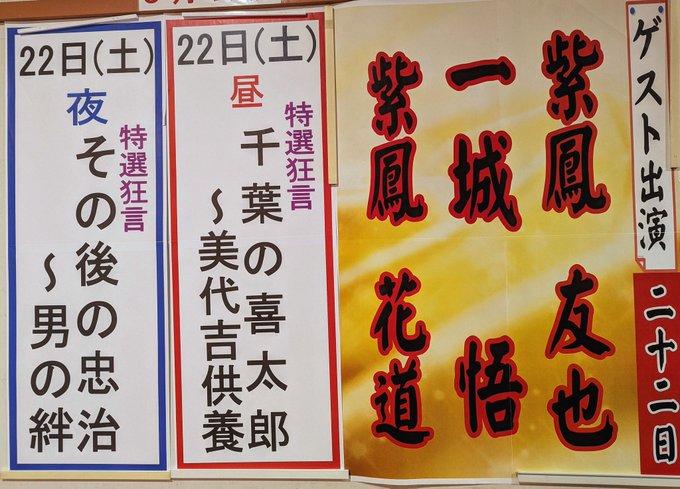 ゲスト出演
二十二日
紫鳳 友也
一城 悟
紫鳳 花道
22日(土)
昼
特選狂言
千葉の喜太郎
~美代吉供養
22日(土)
夜
特選狂言
その後の忠治
~男の絆